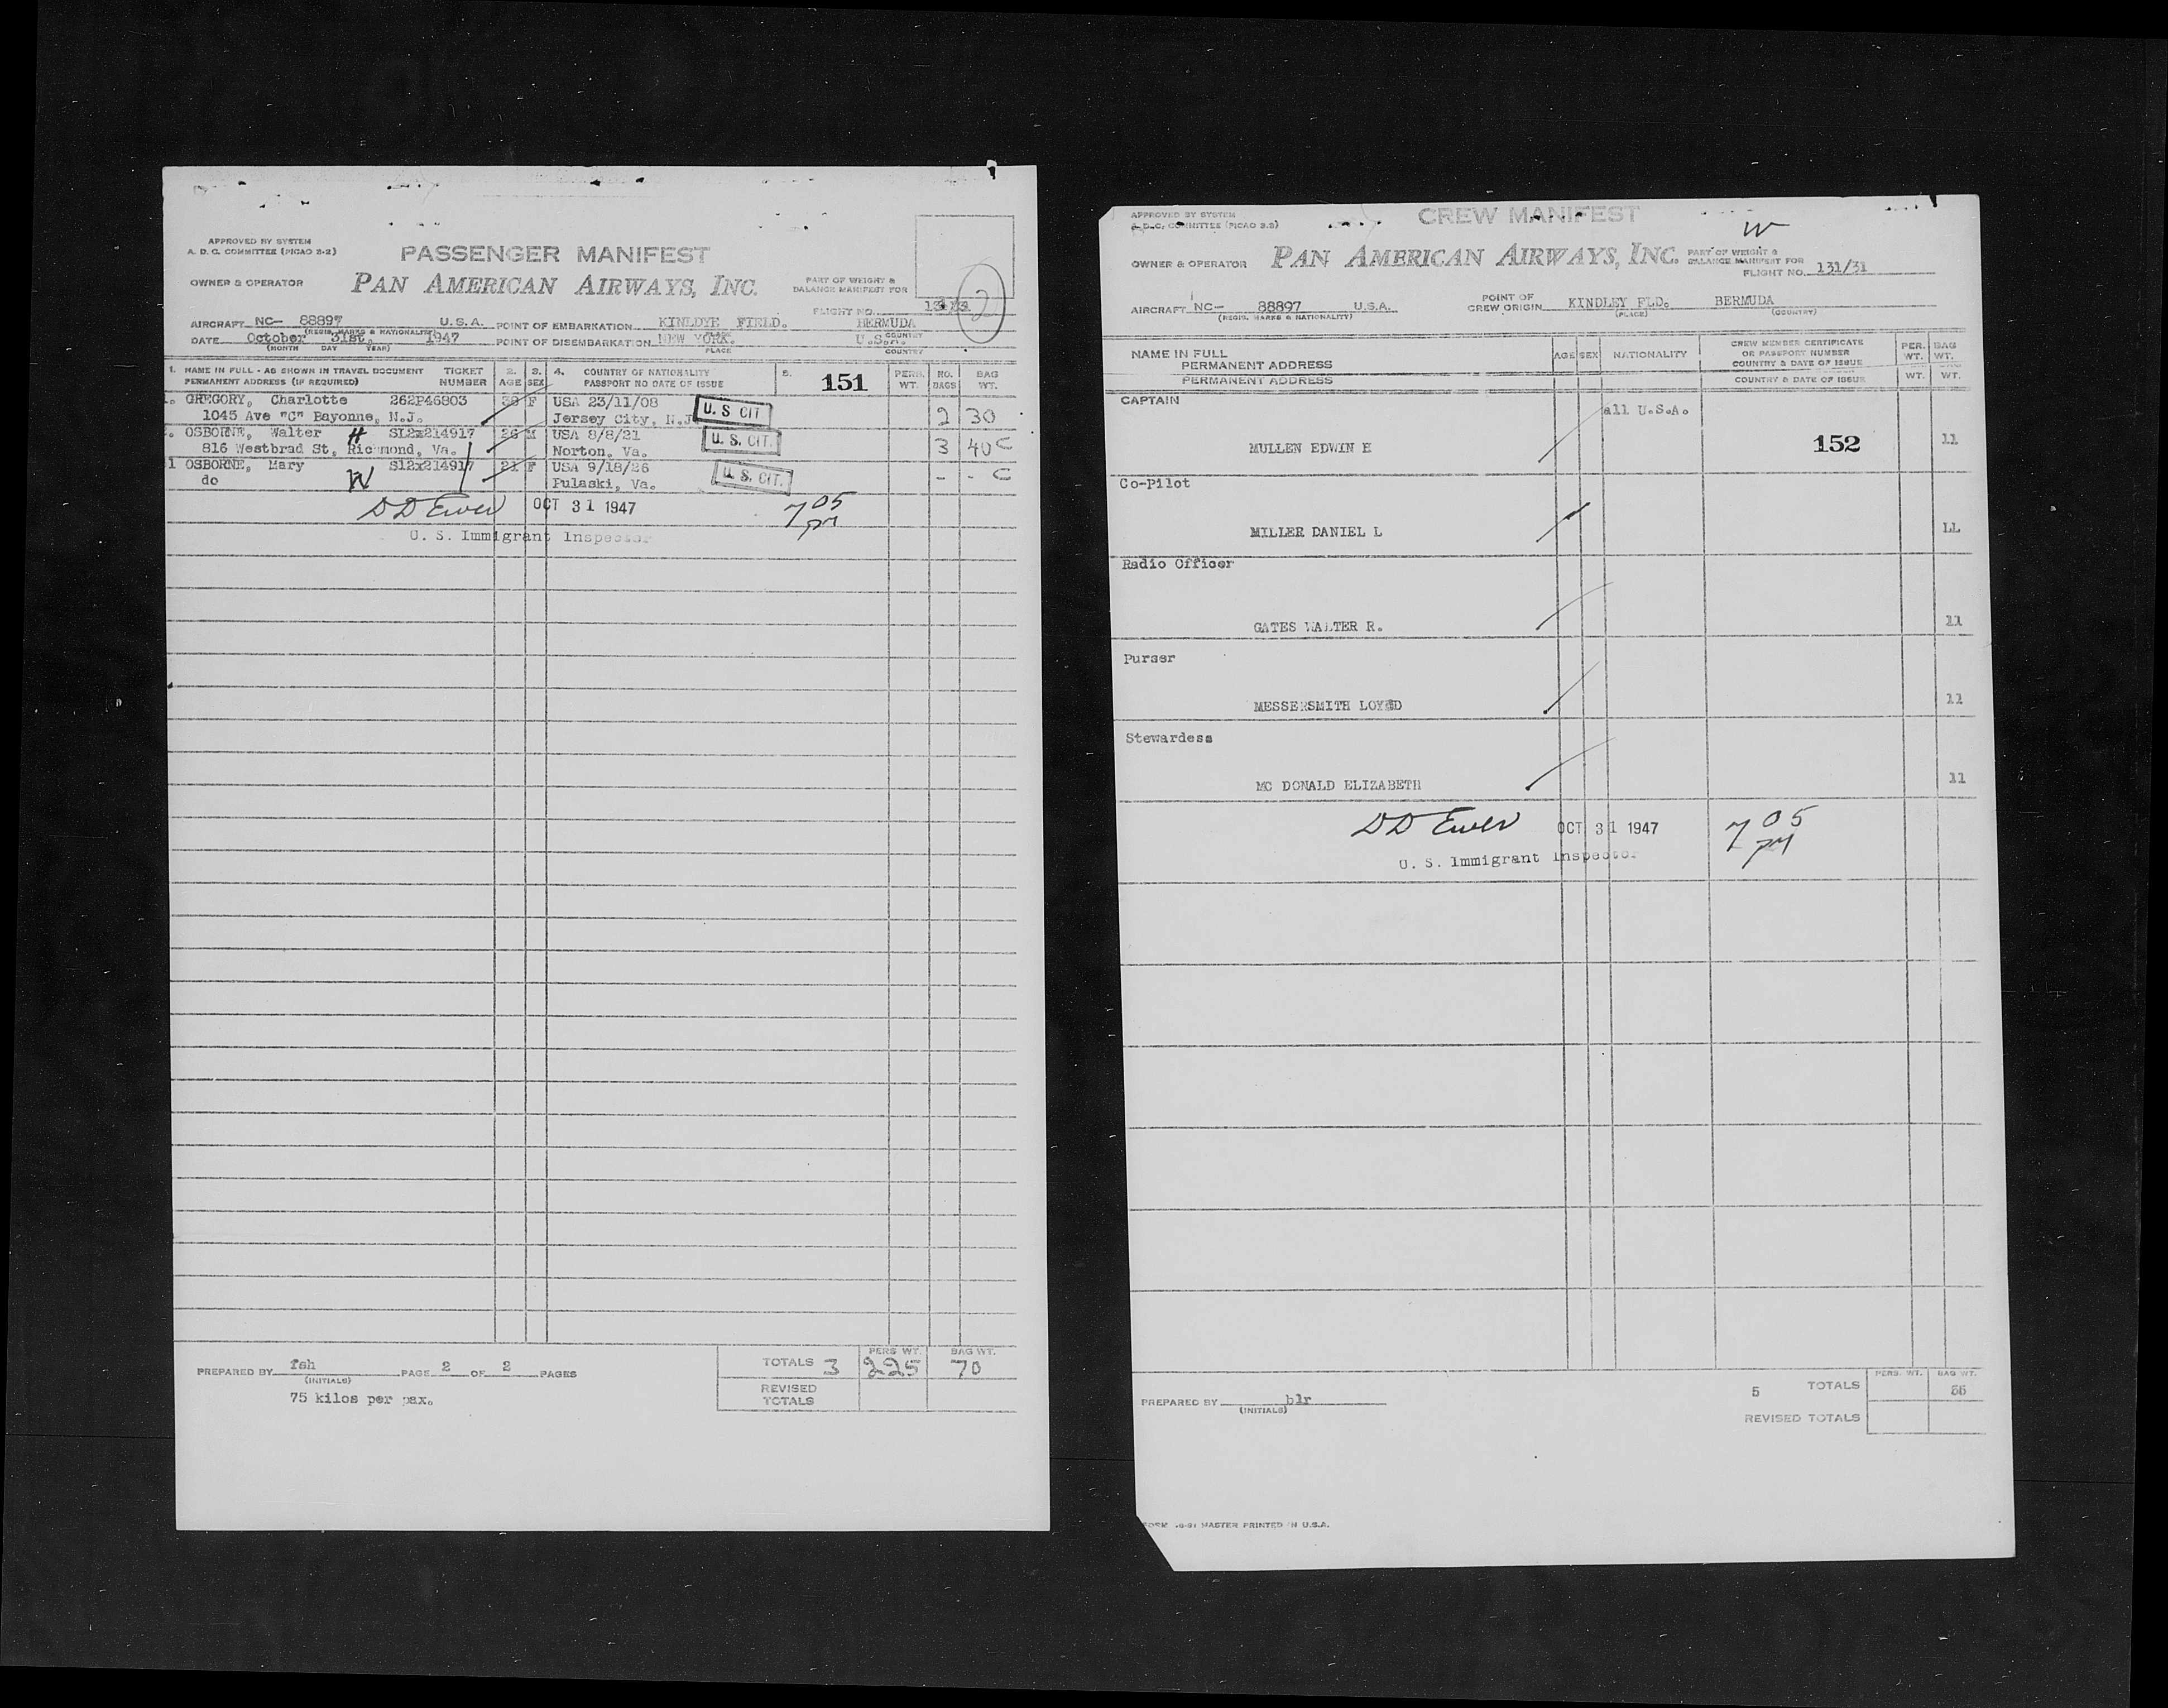 APPROVED BY SYSTEM
A. D. C. COMMITTEE (PICAO 2-2)
PASSENGER MANIFEST
OWNER & OPERATOR PAN AMERICAN AIRWAYS, INC.
PART OF WEIGHT &
BALANCE MANIFEST FOR
FLIGHT NO.
2
AIRCRAFT NC- 88897 U.S.A. POINT OF EMBARKATION KINLDYE FIELD. BERMUDA
(REGIS. MARKS & NATIONALITY) COUNTRY
DATE October 31st, 1947 POINT OF DISEMBARKATION NEW YORK. U.S.A.
(MONTH DAY YEAR) PLACE COUNTRY
1. NAME IN FULL - AS SHOWN IN TRAVEL DOCUMENT TICKET 2. 3. 4. COUNTRY OF NATIONALITY 5. 151 PERS. NO. BAG
PERMANENT ADDRESS (IF REQUIRED) NUMBER AGE SEX PASSPORT NO DATE OF ISSUE WT. BAGS WT.
GREGORY, Charlotte 262P46803 38 F USA 23/11/08 U. S CIT
1045 Ave "C" Bayonne, N.J. Jersey City, N.J 2 30
OSBORNE, Walter H SL2x214917 26 M USA 8/8/21 U. S. CIT.
816 Westbrad St, Richmond, Va. Norton, Va. 3 40 C
1 OSBORNE, Mary W S12x214917 21 F USA 9/18/26 U. S. CIT.
do Pulaski, Va. - - C
DD Ewer OCT 31 1947 7 05 pm
U. S. Immigrant Inspector
PREPARED BY fsh PAGE 2 OF 2 PAGES
(INITIALS)
75 kilos per pax.
PERS WT. BAG WT.
TOTALS 3 225 70
REVISED
TOTALS
APPROVED BY SYSTEM
A.D.C. COMMITTEE (PICAO 2.2)
CREW MANIFEST
W
OWNER & OPERATOR PAN AMERICAN AIRWAYS, INC.
PART OF WEIGHT &
BALANCE MANIFEST FOR
FLIGHT NO. 131/31
AIRCRAFT NC- 88897 U.S.A. POINT OF CREW ORIGIN KINDLEY FLD. BERMUDA
(REGIS. MARKS & NATIONALITY) (PLACE) (COUNTRY)
NAME IN FULL AGE SEX NATIONALITY CREW MEMBER CERTIFICATE PER. BAG
PERMANENT ADDRESS OR PASSPORT NUMBER WT. WT.
COUNTRY & DATE OF ISSUE
PERMANENT ADDRESS COUNTRY & DATE OF ISSUE WT. WT.
CAPTAIN all U.S.A.
152
MULLEN EDWIN E 11
Co-Pilot
MILLER DANIEL L LL
Radio Officer
GATES WALTER R. 11
Purser
MESSERSMITH LOYED 11
Stewardess
MC DONALD ELIZABETH 11
DD Ewer OCT 31 1947 7 05 pm
U. S. Immigrant Inspector
PERS. WT. BAG WT.
5 TOTALS 55
PREPARED BY blr
(INITIALS)
REVISED TOTALS
MASTER PRINTED IN U.S.A.